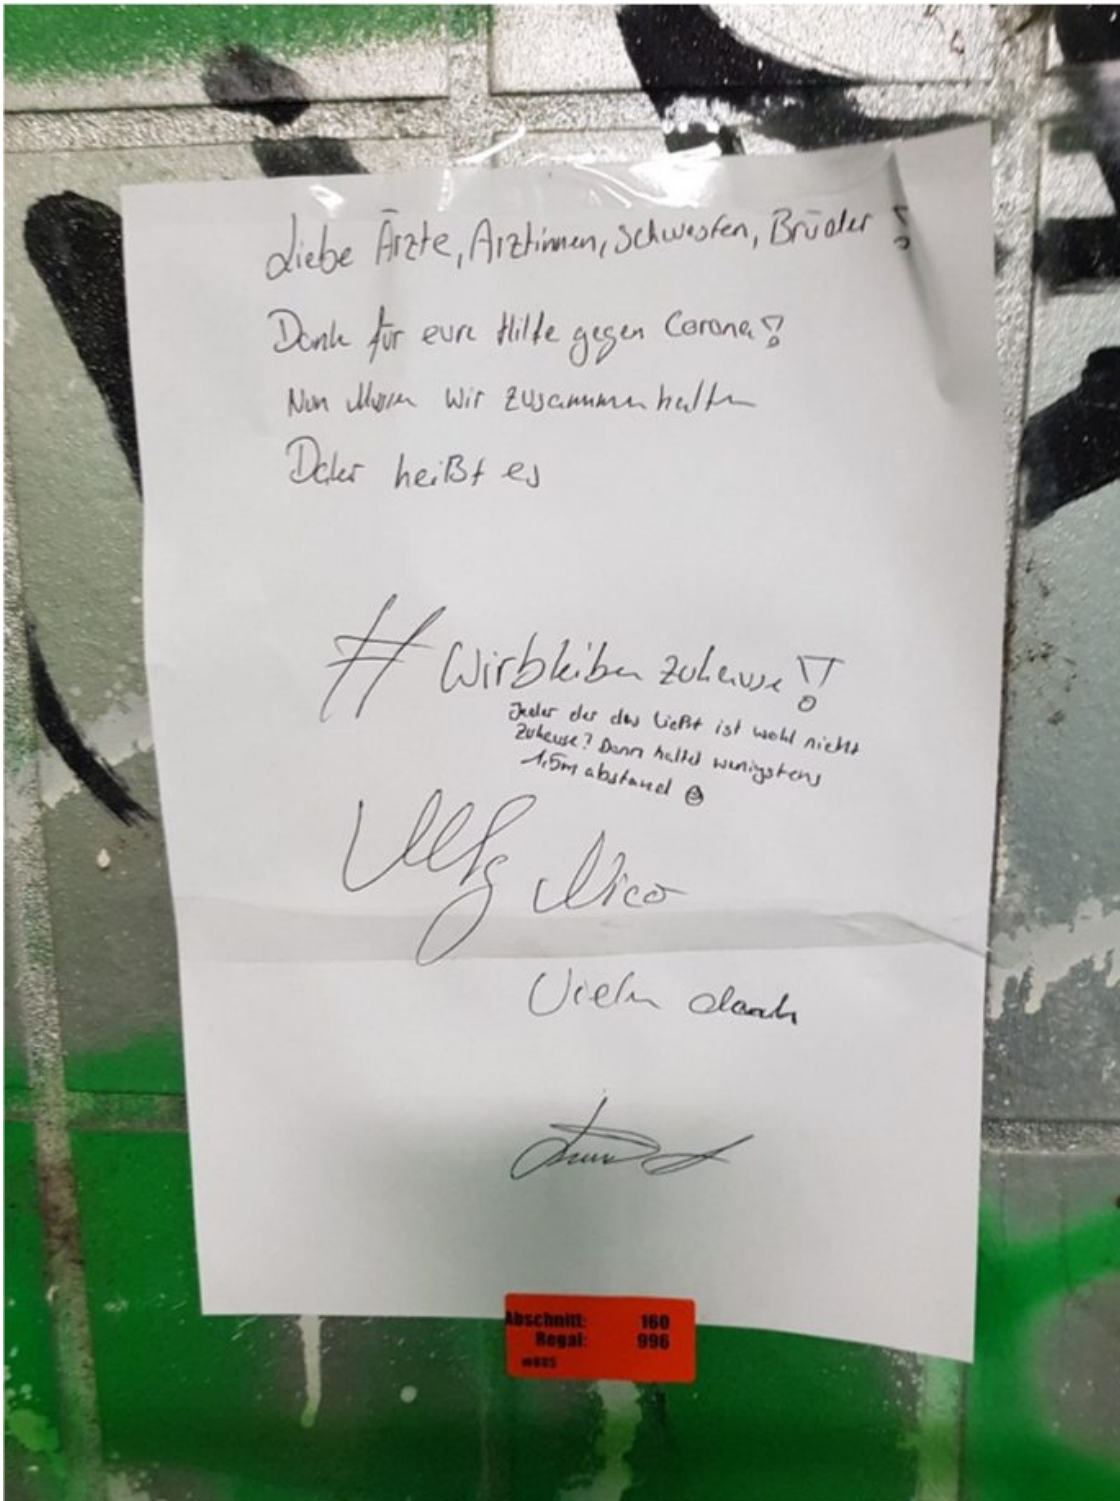 Liebe Ärzte, Ärztinnen, Schwestern, Brüder!
Dank für eure Hilfe gegen Corona!
Nun Müssen wir zusammenhalten
Daher heißt es
#Wirbleibenzuhause!!
Jeder der das ließt ist wohl nicht
zuhause? Dann haltet wenigstens
1,5m abstand
Mfg Nico
Vielen dank
Abschnitt: 160
Regal: 996